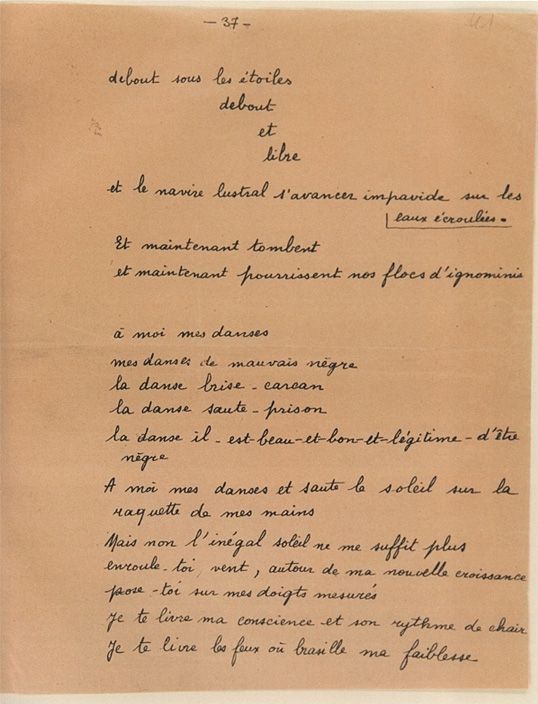 - 37 -
debout sous les étoiles
debout
et
libre
et le navire lustral s'avancer impavide sur les
eaux écroulées.
Et maintenant tombent
et maintenant pourrissent nos flocs d'ignominis
à moi mes danses
mes danses de mauvais nègre
la danse brise - carcan
la danse saute - prison
la danse il - est-beau-et-bon-et-légitime - d'être
nègre
A moi mes danses et saute le soleil sur la
raquette de mes mains
Mais non l'inégal soleil ne me suffit plus
enroule - toi, vent, autour de ma nouvelle croissance
pose - toi sur mes doigts mesurés
Je te livre ma conscience et son rythme de chair
Je te livre les feux où brasille ma faiblesse